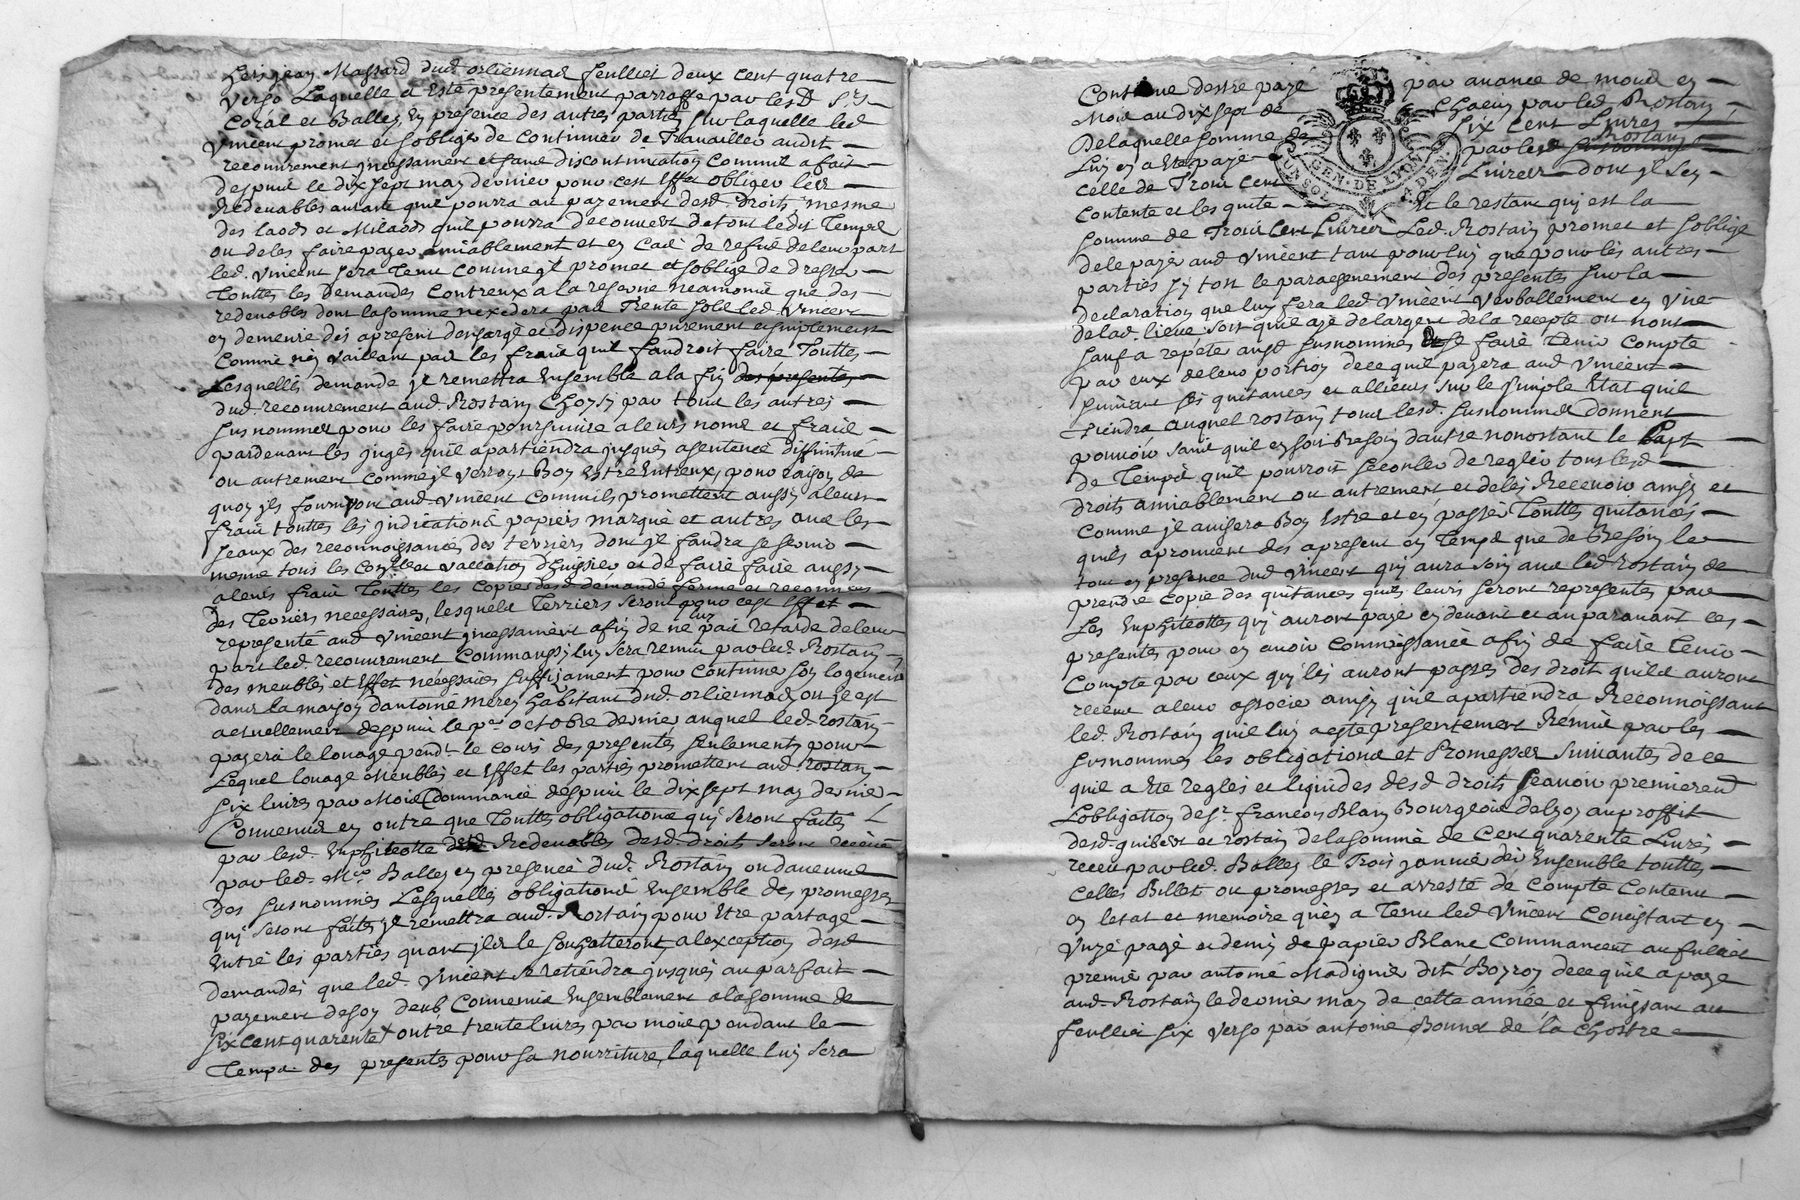 jean Massard dud. orliennas feulliet deux cent quatre
verso Laquelle a Esté presentement parraffe par lesd Srs
Coral et Balley En presence des autres parties sur laquelle led
Vincent promet et soblige de Continuer de Travailler audit
recouvrement incessament et sans discontinuation Comme a fait
despuis le dix sept may dernier pour cest Effet obliger les
Redevables autant quil pourra au payement desd. droits mesme
des laods et Milaods quil pourra decouvrir de tout ledit Temps
ou de les faire payer amiablement et en Cas de refus de leur part
led. Vincent sera tenu comme jl promet et soblige de dresser
Touttes les demandes Contreux a la reserve neamoins que des
redevables dont la somme nexedera pas Trente sols led. Vincent
en demeure des apresent descharge et dispence purement et simplement
Comme nen vaillant pas les fraix quil faudroit faire Touttes
Lesquelles demande je remettra Ensemble a la fin des presentes
dud. recouvrement aud. Rostain Choysy par tous les autres
susnommes pour les faire poursuivre a leurs noms et fraix
pardevant les juges quil apartiendra jusques a sentence diffinitive
ou autrement Comme jl verront Bon Estre Entreux, pour raison de
quoy jls fourniront aud. Vincent Comm'ils promettent aussy a leurs
fraix touttes les jndications papiers marque et autres avec les
seaux des reconnoissances des terriers dont jl faudra se servir
mesme tous les vaccation dhuissier et de faire faire aussy
a leurs fraix Touttes les Copies desd demande ferme et reconnus
des Terriers necessaires, lesquels Terriers seront pour cest Effet
representé aud Vincent jncessament afin de ne pas Retarde de leur
part led. recouvrement Comm aussy luy sera remis par led. Rostain
des meubles et Effet necessaires suffizament pour Continue son logement
dans la mayson dantoine merey habitant dud. orliennas ou jl est
actuellement despuis le per octobre dernier auquel led. rostain
payera le louage pendt le cours des presentes seulements pour
Lequel louage Meubles et Effet les parties promettent aud. rostain
six livres par Mois Commancé despuis le dix sept may dernier
Convenus en outre que Touttes obligations qui seront faites
par lesd. Emphiteotte Redevables desd. droits seront recüeüs
par led. Me Balley en presence dud. Rostain ou daucuns
des susnommes Lesquelles obligations Ensemble des promesses
qui seront faites jl remettra aud. Rostain pour Etre partage
Entre les parties quant jls le souhatteront a lexception desd
demandes que led. Vincent se retiendra jusques au parfait
payement de son deub, Convenue Ensemblement a la somme de
six cent quarente outre trente livres par mois pandant le
Temps des presentes pour sa nourriture, laquelle luy sera
Continue destre payé par avance de mois en
Mois au dix sept de chacun par led. Rostain
De laquelle somme de six cent Livres
Luy en a Ete payé par led Rostain
celle de Trois Cent Livres dont jl sen
Contente et les quitte Et le restant qui est la
somme de Trois Cent Livres Led. Rostain promet et soblige
de le paye aud Vincent tant pour luy que pour les autres
parties sy tost le paraegenement des presentes sur la
declaration que luy fera led Vincent Verballement en Vüe
de lad. lieve soit quil aye de largent de la recepte ou non
sauf a repete ausd susnommes se faire Tenir Compte
par eux de leur portion de ce quil payera aud Vincent
suivant ses quitances et allieurs sur le simple Etat quil
Tiendra auquel rostain tous lesd. susnommes donnent
pouvoir sans quil en soit Besoin dautre nonostant le Lapt
de Temps quil pourroit secouler de regler tous lesd
droits amiablement ou autrement et de les Recevoir ainsy et
Comme jl avisera Bon Estre et en passer Touttes quitances
quils aprouvent des apresent en Temps que de Besoin le
tout en presence dud Vincent qui aura soin avec led rostain de
prendre copie des quitances qui leurs seront representes par
Les Emphiteottes qui auront paye en devant et auparavant ces
presentes pour en avoir Connoissance afin de faire Tenir
Compte par ceux qui les auront passes des droit quils auront
receus a leur associe ainsy quil apartiendra Reconnoissant
led. Rostain quil luy a este presentement Remis par les
susnommes les obligations et Promesses suivantes de ce
quil a Ete regles et liquides desd droits sçavoir premierent
Lobligation de Sr. francois Blain Bourgeois de Lyon au proffit
desd. guibert et rostain de la somme de Cent quarente Livres
receu par led. Balley le Trois janvier der Ensemble touttes
Celles Billet ou promesses et arresté de Compte Contenu
en letat et memoire quen a Tenu led Vincent Concistant en
Vnze page et demi de papier Blanc Commancent au fulliet
premie par antoine Madignie dit Boyron de ce quil a paye
aud. Rostain le dernie may de cette année et finissant au
feulliet six verso par antoine Bonnet de la Chostre
GEN. DE LYON
UN SOL
4 DEN